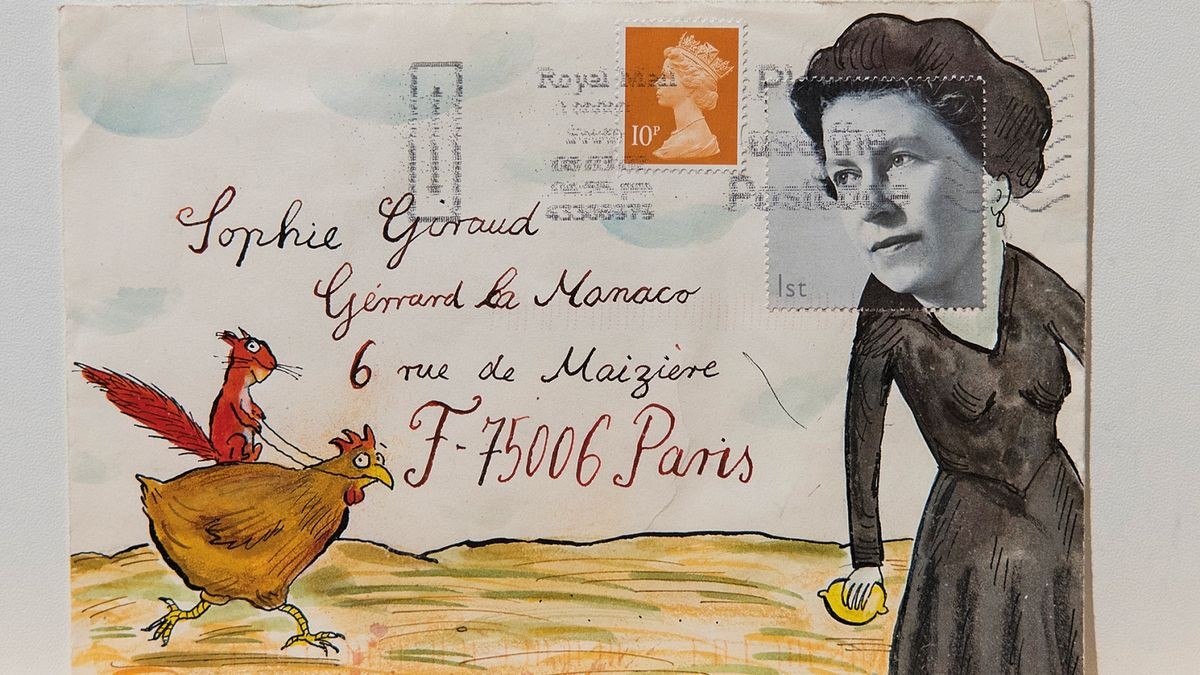 Royal Mail
10P
1st
Sophie Giraud
Gérrard la Monaco
6 rue de Maizière
F-75006 Paris